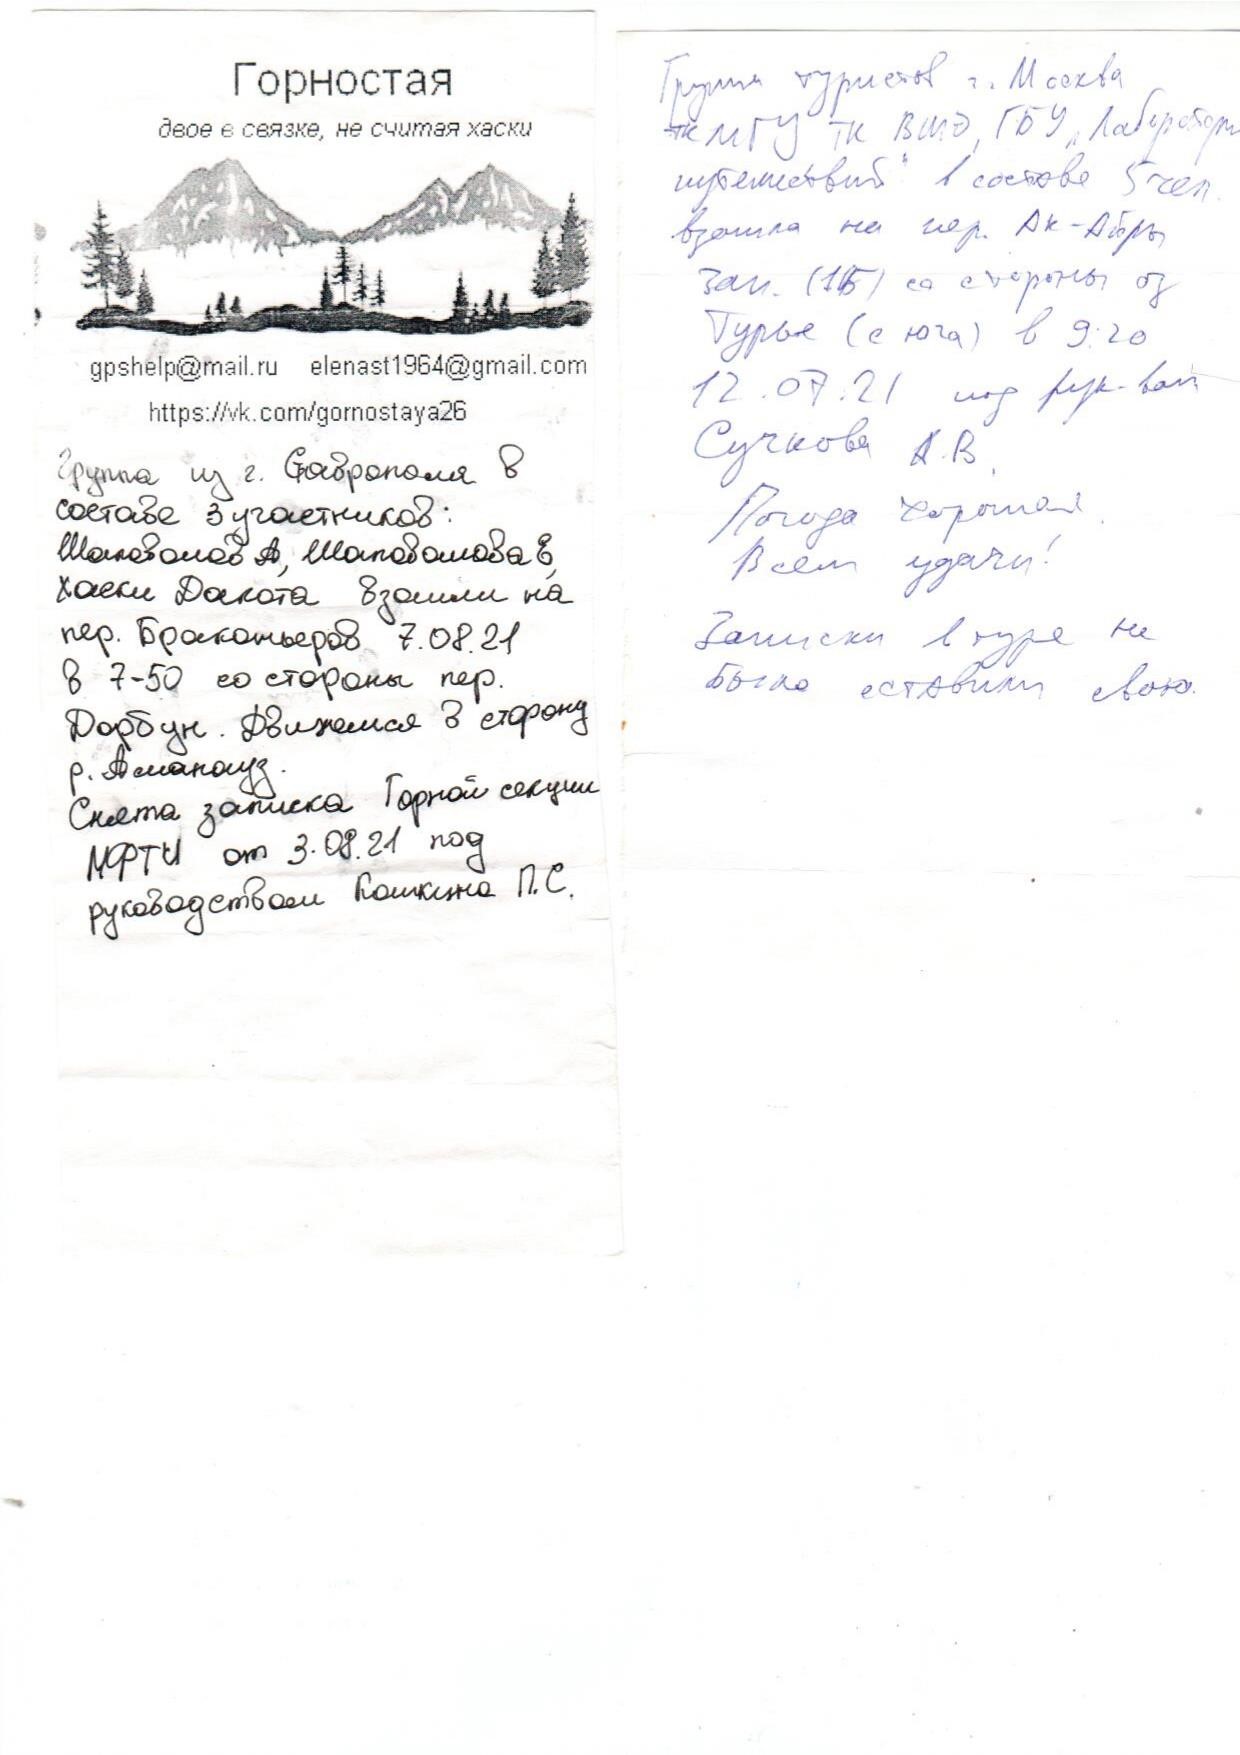 Горностая
двое в связке, не считая хаски
gpshelp@mail.ru elenast1964@gmail.com
https://vk.com/gornostaya26
Группа из г. Ставрополя в
составе 3 участников:
Шаповалов А, Шаповалова Е,
Хаски Дакота взошли на
пер. Браконьеров 7.08.21
в 7-50 со стороны пер.
Дорбун. Движемся в сторону
р. Аманауз.
Снята записка Горной секции
МФТИ от 3.08.21 под
руководством Кошкина П.С.
Группа туристов г. Москва
тк МГУ ТК ВШЭ, ГБУ „Лаборатория
путешествий" в составе 5 чел.
взошла на пер. Ак-Айры
зап. (1Б) со стороны оз
Турье (с юга) в 9:20
12.07.21 под рук-вом
Сучкова А.В.
Погода хорошая.
Всем удачи!
Записки в туре не
было оставили свою.